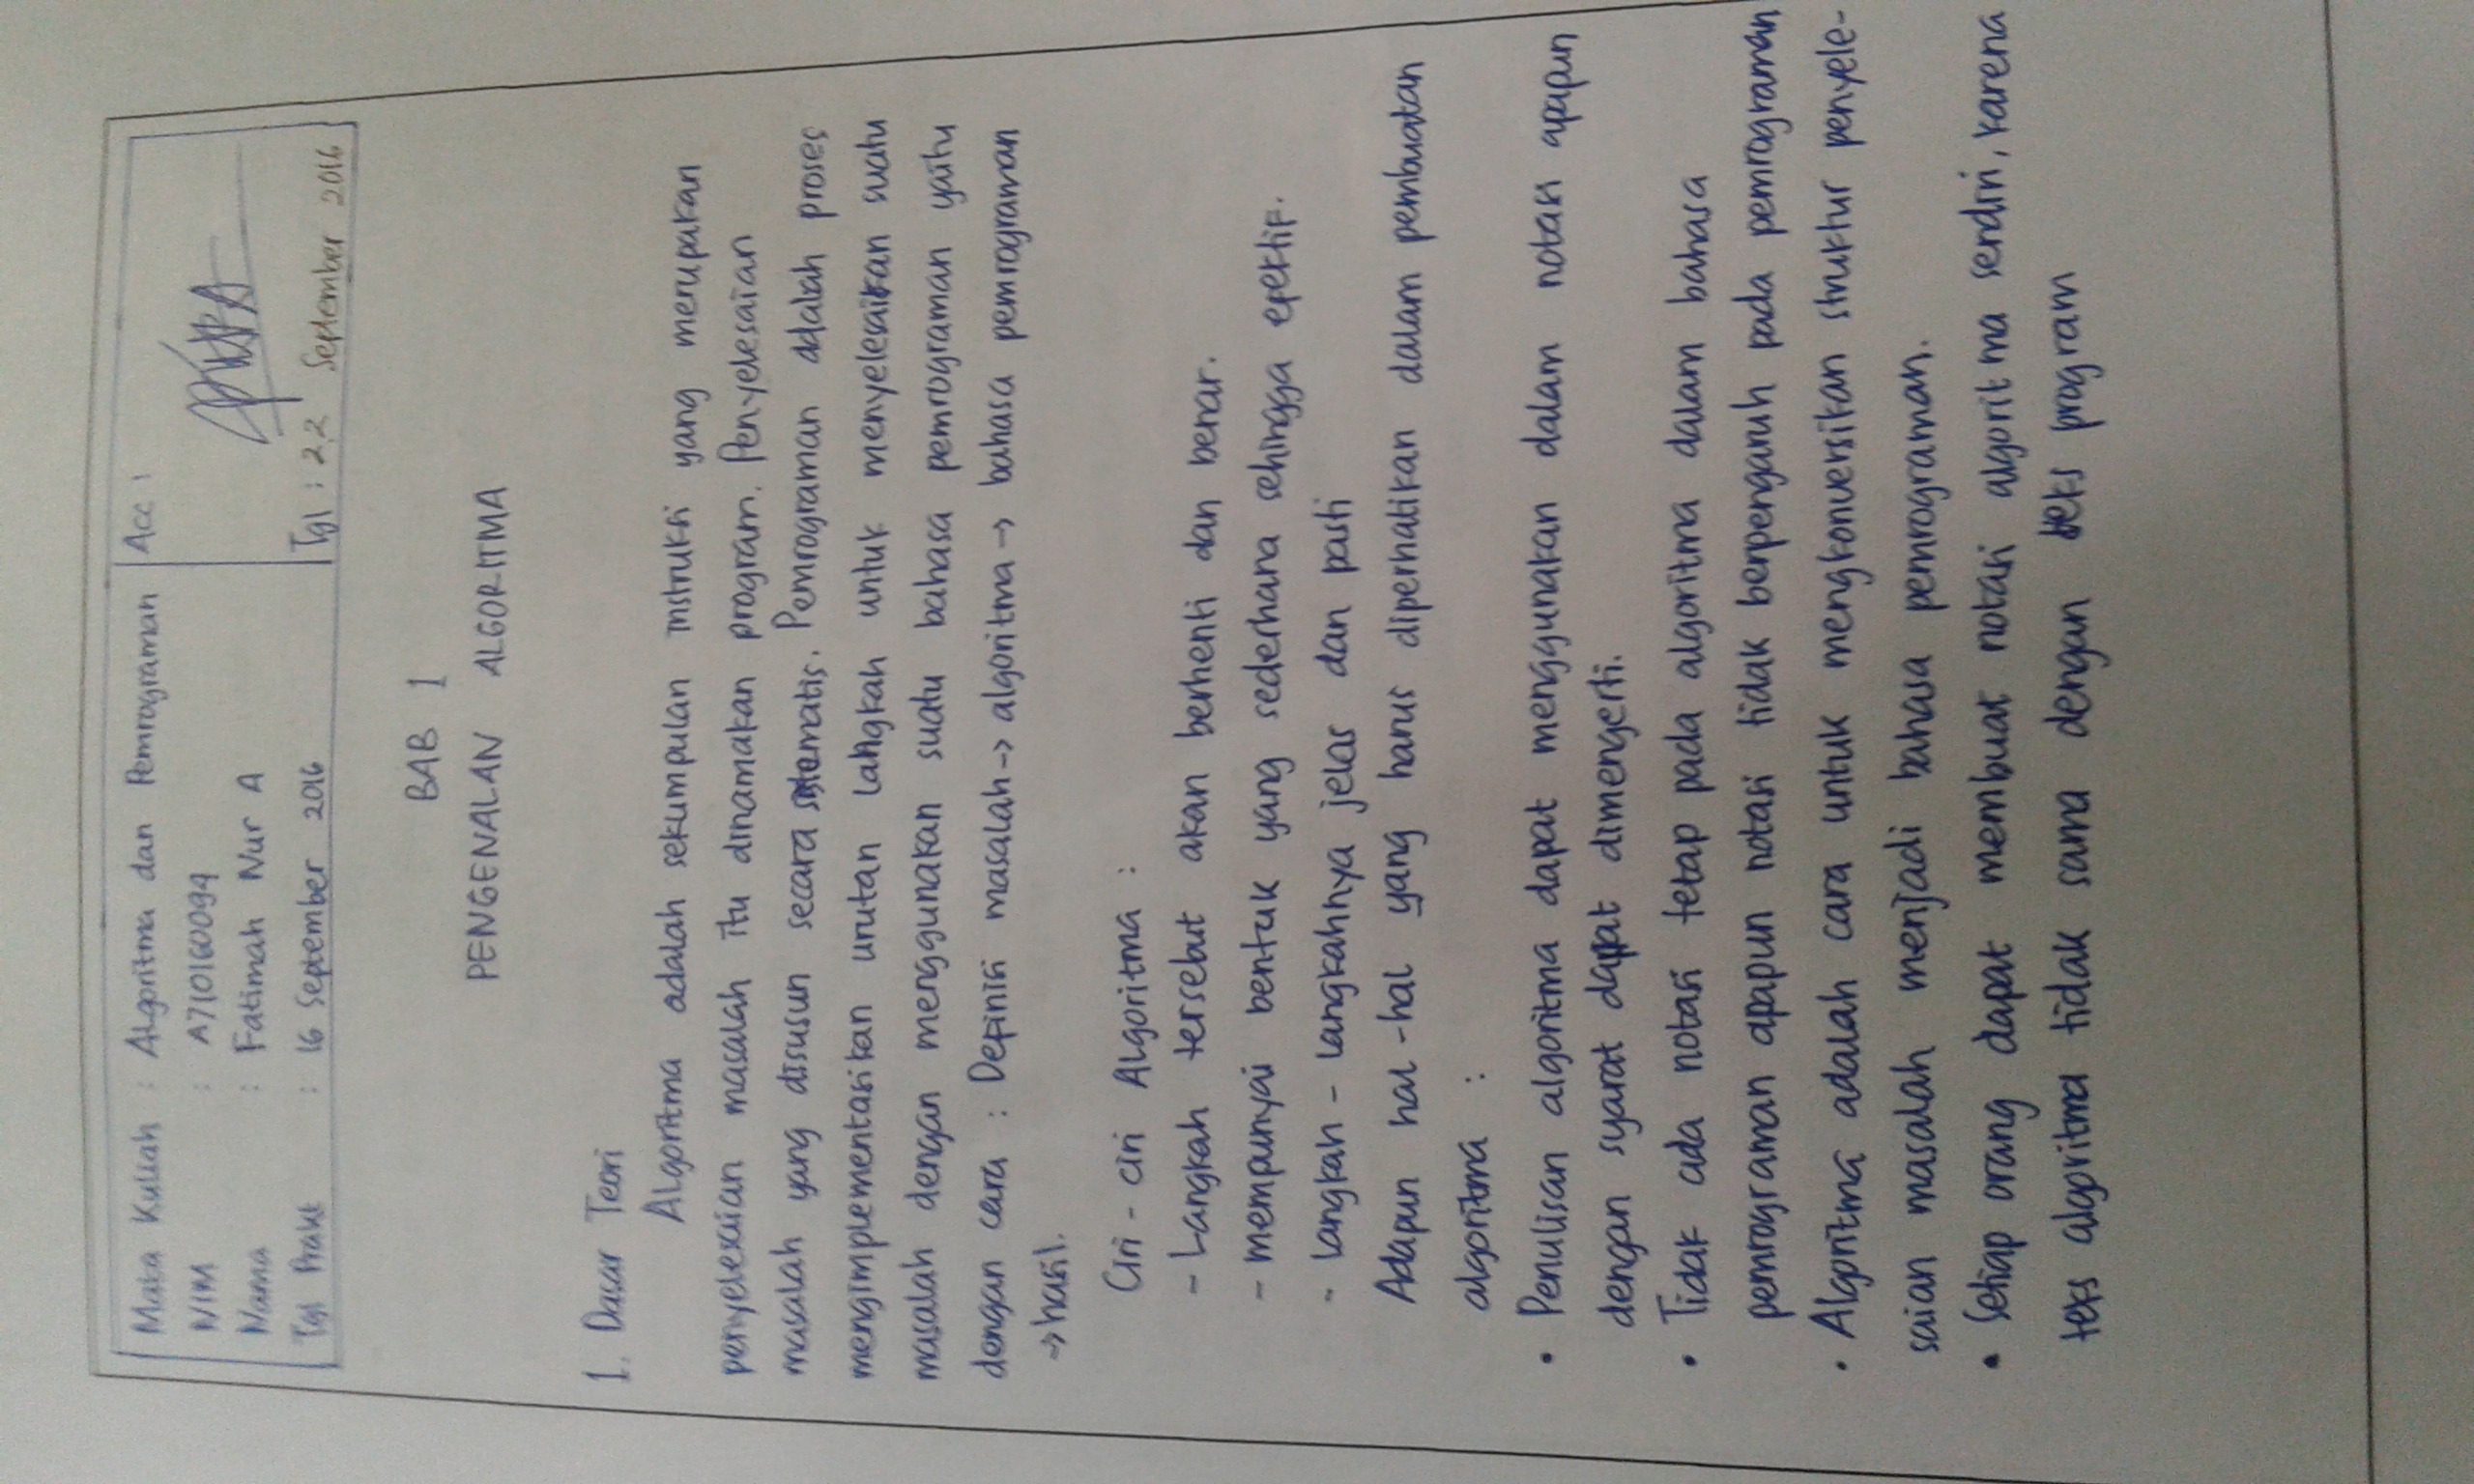 Mata Kuliah : Algoritma dan Pemrograman
NIM : A710160094
Nama : Fatimah Nur A
Tgl Prakt : 16 September 2016
Acc :
Tgl : 22 September 2016
BAB 1
PENGENALAN ALGORITMA
1. Dasar Teori
Algoritma adalah sekumpulan instruksi yang merupakan
penyelesaian masalah itu dinamakan program. Penyelesaian
masalah yang disusun secara sistematis. Pemrograman adalah proses
mengimplementasikan urutan langkah untuk menyelesaikan suatu
masalah dengan menggunakan suatu bahasa pemrograman yaitu
dengan cara : Definisi masalah -> algoritma -> bahasa pemrograman
-> hasil.
Ciri - ciri Algoritma :
- Langkah tersebut akan berhenti dan benar.
- mempunyai bentuk yang sederhana sehingga efektif.
- langkah - langkahnya jelas dan pasti
Adapun hal - hal yang harus diperhatikan dalam pembuatan
algoritma :
• Penulisan algoritma dapat menggunakan dalam notasi apapun
dengan syarat dapat dimengerti.
• Tidak ada notasi tetap pada algoritma dalam bahasa
pemrograman apapun notasi tidak berpengaruh pada pemrograman
• Algoritma adalah cara untuk mengkonversikan struktur penyele-
saian masalah menjadi bahasa pemrograman.
• Setiap orang dapat membuat notasi algoritma sendiri, karena
teks algoritma tidak sama dengan teks program